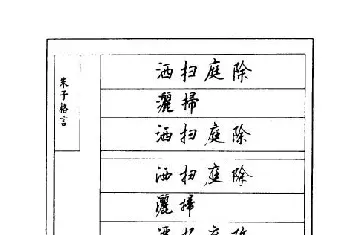 朱子格言
洒扫庭除
灑掃
洒扫庭除
洒扫庭除
灑掃
洒扫庭除